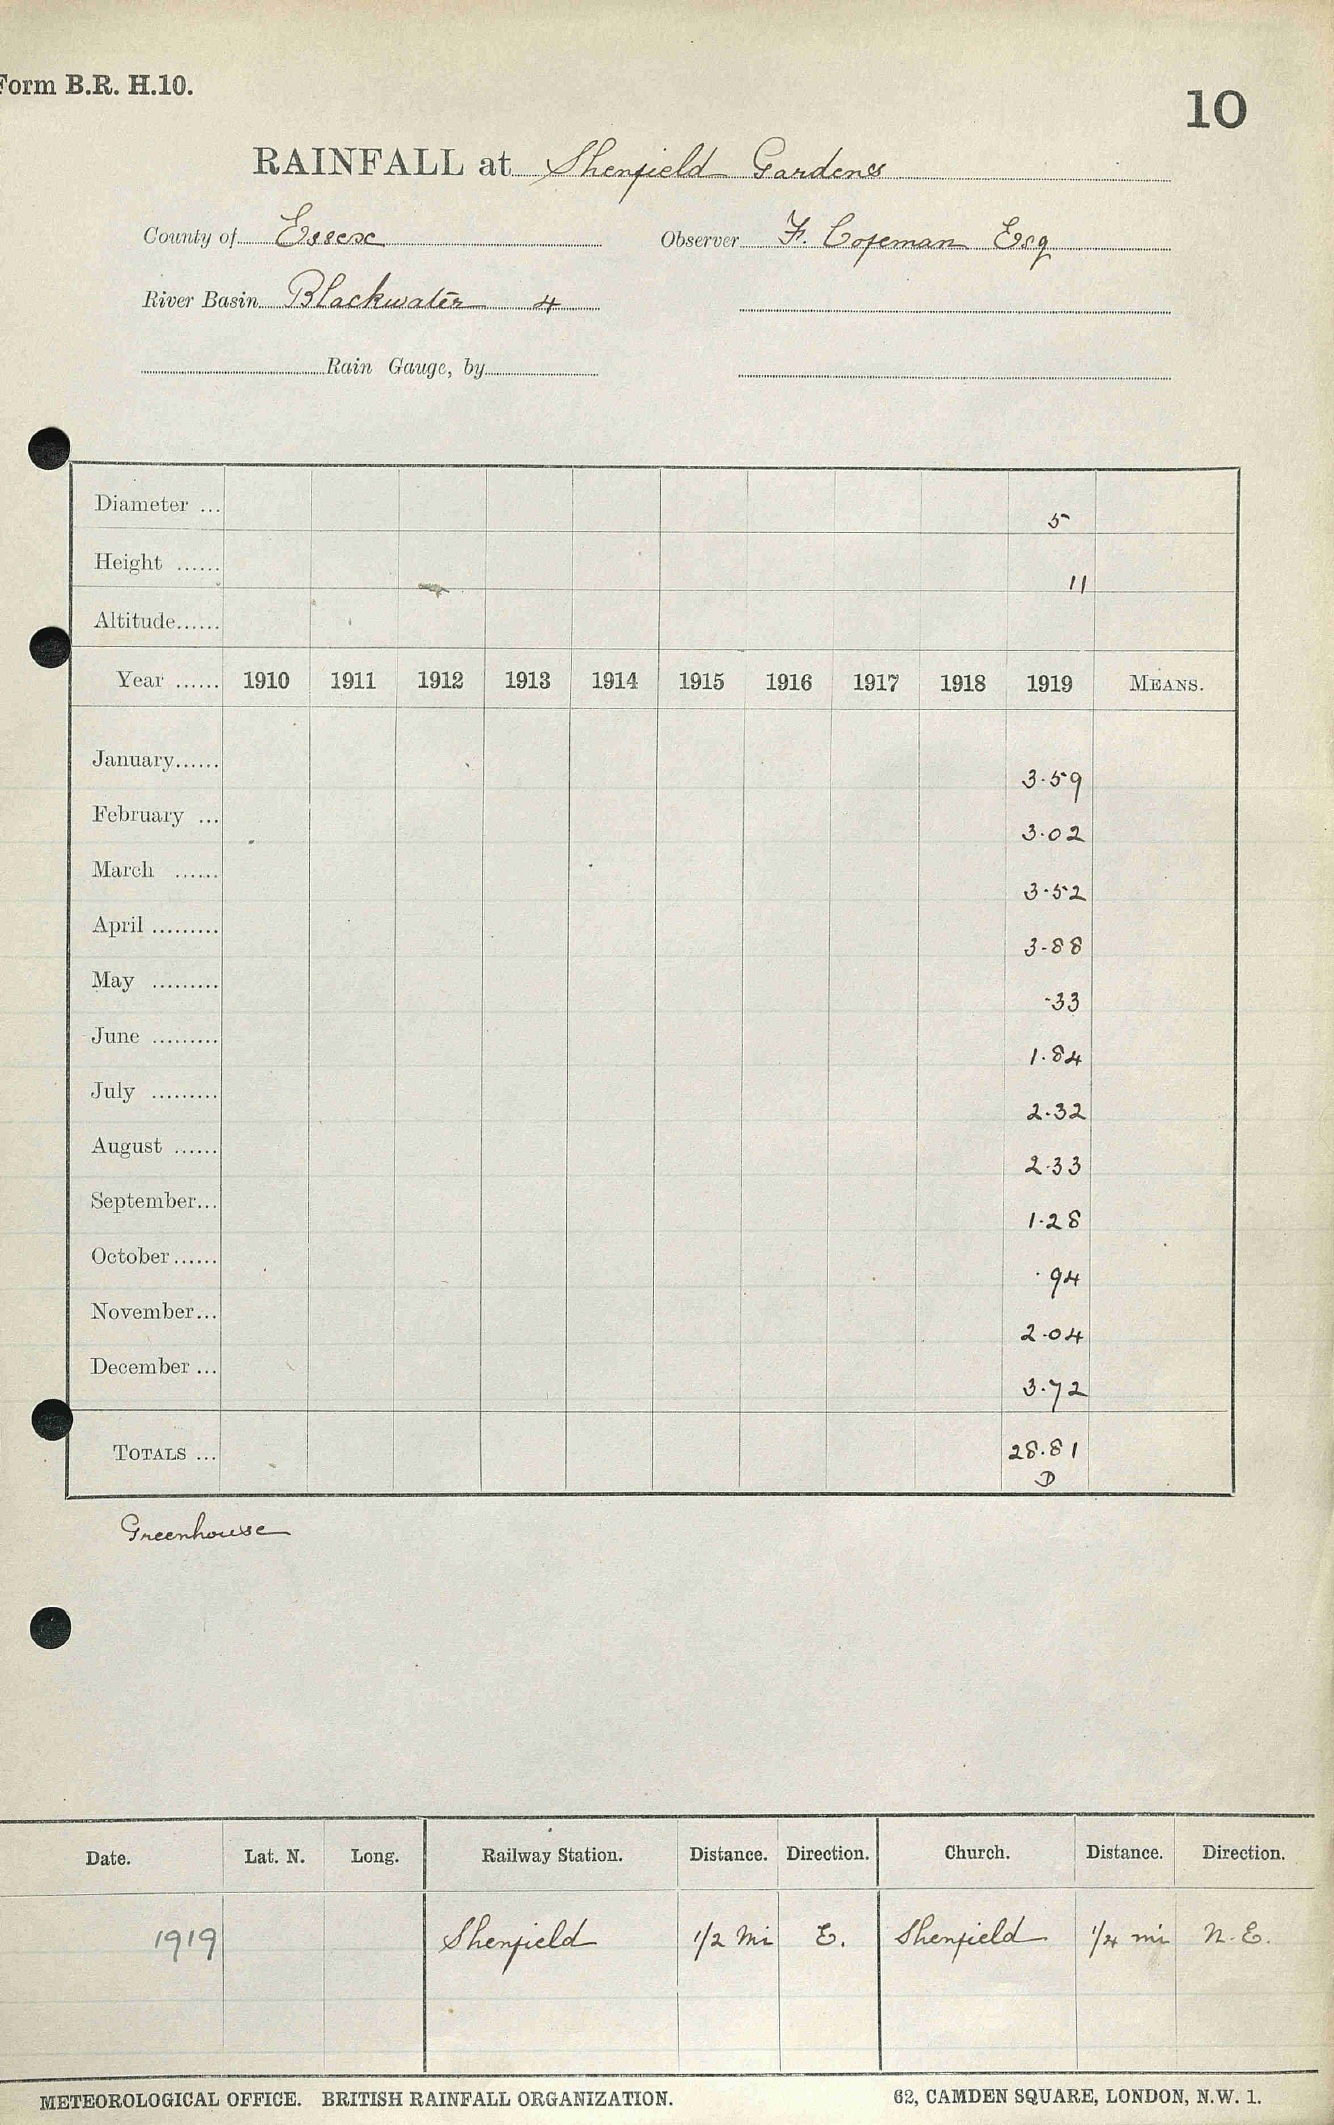 Form B.R. H.10.
10
RAINFALL at Shenfield Gardens
County of Essex Observer F. Copeman Esq
River Basin Blackwater 4
Rain Gauge, by
Diameter ... 5
Height ...... 11
Altitude......
Year ...... 1910 1911 1912 1913 1914 1915 1916 1917 1918 1919 MEANS.
January...... 3.59
February ... 3.02
March ...... 3.52
April ......... 3.88
May ......... .33
June ......... 1.84
July ......... 2.32
August ...... 2.33
September... 1.28
October...... .94
November... 2.04
December ... 3.72
TOTALS ... 28.81
D
Greenhouse
Date. Lat. N. Long. Railway Station. Distance. Direction. Church. Distance. Direction.
1919 Shenfield 1/2 Mi E. Shenfield 1/4 mi N.E.
METEOROLOGICAL OFFICE. BRITISH RAINFALL ORGANIZATION. 62, CAMDEN SQUARE, LONDON, N.W. 1.